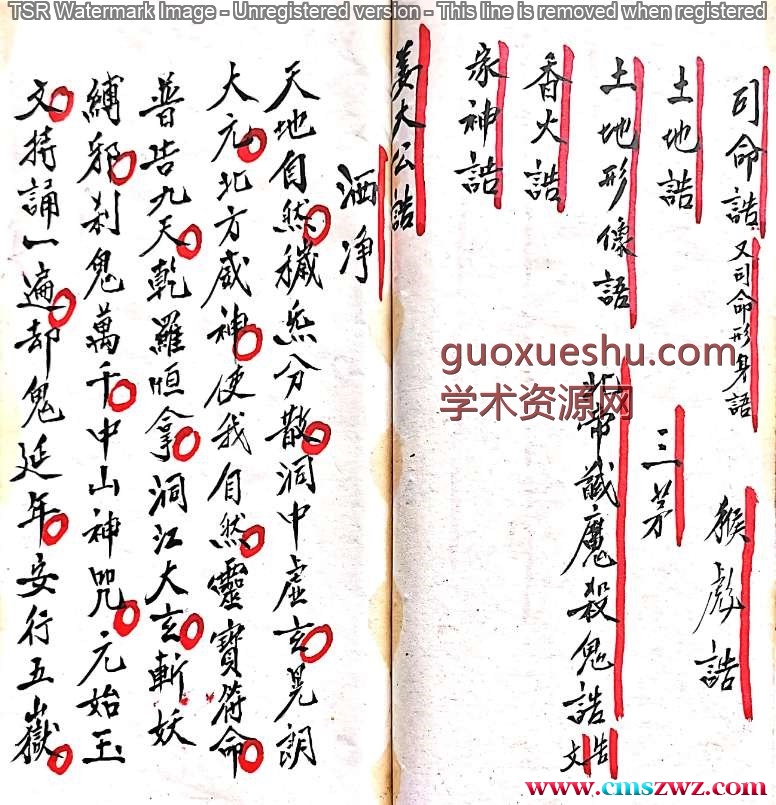 TSR Watermark Image - Unregistered version - This line is removed when registered
司命誥 又司命形身語
猴彪誥
土地誥
三茅
土地形像語
北帝誠魔殺鬼誥 告文
香火誥
家神誥
姜大公誥
洒净
天地自然穢炁分散洞中虚玄晃朗
大元北方威神使我自然靈寶符命
普告九天乾羅恒拿洞江大玄斬妖
縛邪刹鬼萬千中山神咒元始玉
文持誦一遍却鬼延年安行五嶽
guoxueshu.com
学术资源网
www.cmszwz.com